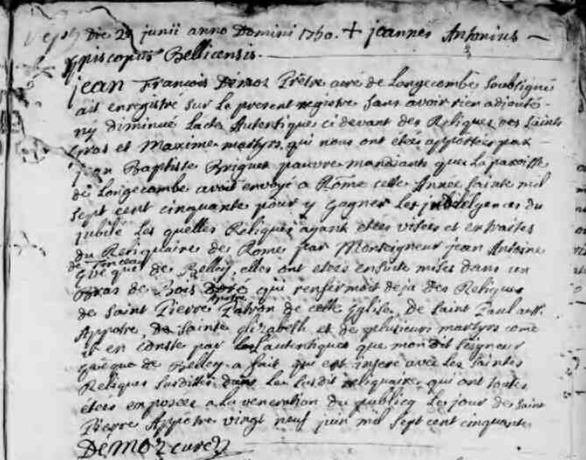 die 29 junii anno Domini 1750. + joannes Antonius
Episcopus Bellicensis.
jean François Demoz Prêtre curé de Longecombe soubsigné
ait enregistré sur le present registre sans avoir rien adjouté
ny diminué Lacte Autentique ci devant des Reliques des saints
et Maxime martyrs, qui nous ont etées apportées par
jean Baptiste Briguet pauvre mandiants que La paroisse
de Longecombe avoit envoyé a Rome cette Année sainte mil
sept cent cinquante pour y gagner Les indulgences du
jubilé Les quelles Reliques ayant etées visées et extraites
du Reliquaires de Rome par Monseigneur jean Antoine
de Tinceau
Evêque de Belley, elles ont etées ensuite mises dans un
Bras de Bois doré qui renfermoit deja des Reliques
de saint Pierre Patron de cette Eglise, de saint Paul
Appotre de sainte elizabelle et de plusieurs martyrs come
il en conste par l'autentiques que mon dit seigneur
Eveque de Belley a fait, qui est inseré avec les saintes
Reliques susdittes dans le susdit reliquaire, qui ont toutes
etées exposées a la veneration du publicq Le jour de saint
Pierre Appotre vingt neuf juin mil sept cent cinquante
Démoz curé